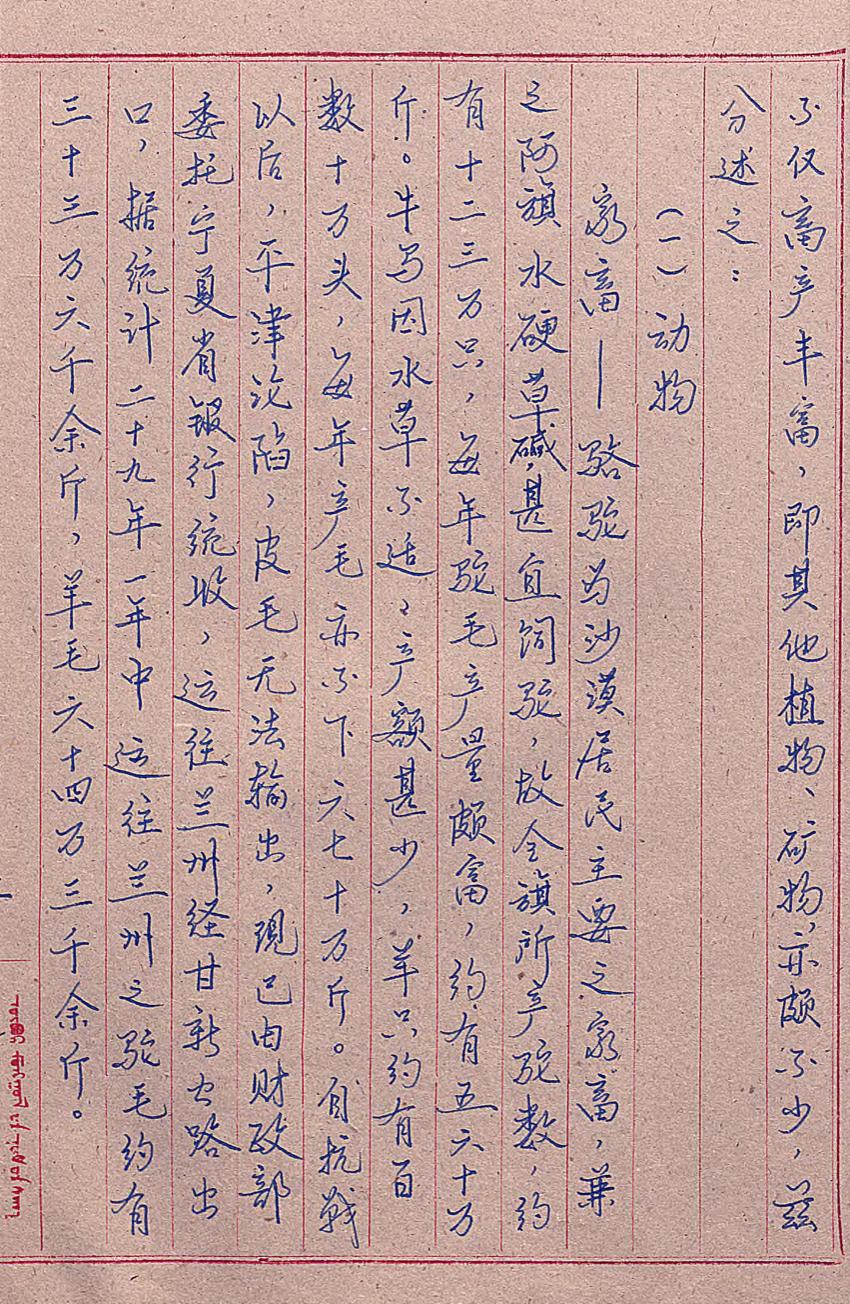 不仅畜产丰富，即其他植物、矿物，亦颇不少，兹
分述之：
（一）动物
家畜—骆驼为沙漠居民主要之家畜，兼
之阿旗水硬草碱，甚宜饲驼，故全旗所产驼数，约
有十二三万只，每年驼毛产量颇富，约有五六十万
斤。牛马因水草不适，产额甚少，羊只约有百
数十万头，每年产毛亦不下六七十万斤。自抗战
以后，平津沦陷，皮毛无法输出，现已由财政部
委托宁夏省银行统收，运往兰州经甘新公路出
口，据统计二十九年一年中运往兰州之驼毛约有
三十三万六千余斤，羊毛六十四万三千余斤。